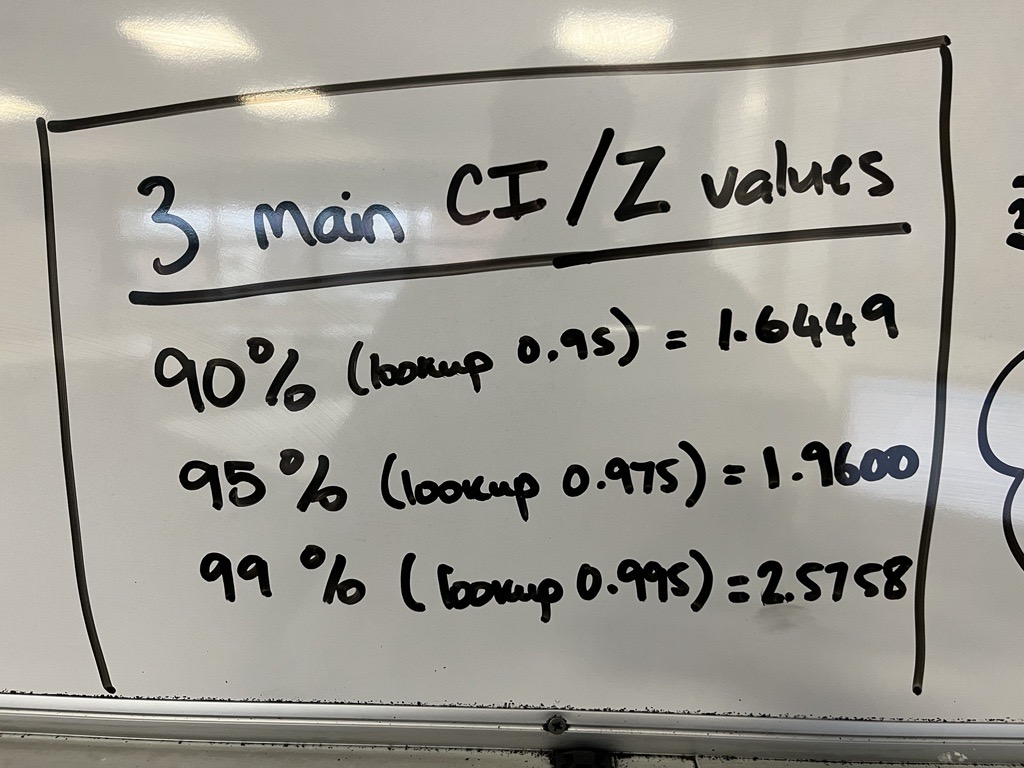 3 main CI/Z values
90% (lookup 0.95) = 1.6449
95% (lookup 0.975) = 1.9600
99% (lookup 0.995) = 2.5758